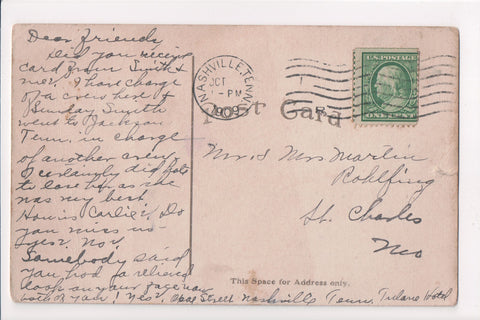 Dear Friends
Did you recieve
card from Smith &
me. I have charge
of a crew here &
Sunday Smith
went to Jackson
Tenn. in charge
of another crew
I certainly did hate
to lose as
was my best.
How is Carlie? Do
you miss us
yes? No?
Somebody said
you had a relieved
look on your face now
both of you! Yes? Street Nashville Tenn. Tulane Hotel
NASHVILLE, TENN.
OCT
1-PM
1909
U.S. POSTAGE
ONE CENT
Post Card
Mr & Mrs Martin
Rohlfing
St. Charles
Mo
This Space for Address only.